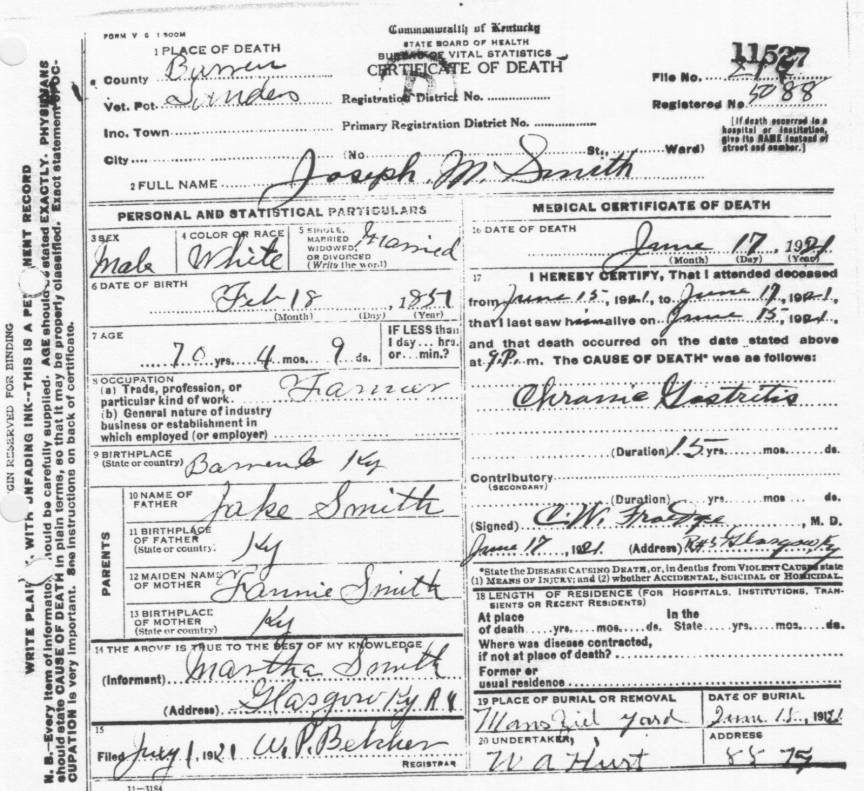 FORM V S 1 500M
Commonwealth of Kentucky
STATE BOARD OF HEALTH
BUREAU OF VITAL STATISTICS
CERTIFICATE OF DEATH
1 PLACE OF DEATH
County Barren
Vot. Pct.
Ino. Town
City
(No. St., Ward)
Registration District No.
Primary Registration District No.
11527
File No.
Registered No 5088
[If death occurred in a hospital or institution, give its NAME instead of street and number.]
2 FULL NAME Joseph. M. Smith
PERSONAL AND STATISTICAL PARTICULARS
3 SEX
Male
4 COLOR OR RACE
White
5 SINGLE, MARRIED WIDOWED, OR DIVORCED (Write the word)
Married
6 DATE OF BIRTH
Feb 18, 1851
(Month) (Day) (Year)
7 AGE
70 yrs. 4 mos. 9 ds.
IF LESS than 1 day... hrs. or... min.?
8 OCCUPATION
(a) Trade, profession, or particular kind of work. Farmer
(b) General nature of industry business or establishment in which employed (or employer)
9 BIRTHPLACE
(State or country) Barren Co Ky
PARENTS
10 NAME OF FATHER Jake Smith
11 BIRTHPLACE OF FATHER (State or country) Ky
12 MAIDEN NAME OF MOTHER Fannie Smith
13 BIRTHPLACE OF MOTHER (State or country) Ky
14 THE ABOVE IS TRUE TO THE BEST OF MY KNOWLEDGE
(Informant) Martha Smith
(Address) Glasgow Ky R 4
15
Filed July 1, 1921 W. P. Belcher
REGISTRAR
11-3184
MEDICAL CERTIFICATE OF DEATH
16 DATE OF DEATH
June 17, 1921
(Month) (Day) (Year)
17 I HEREBY CERTIFY, That I attended deceased
from June 15, 1921, to June 17, 1921,
that I last saw him alive on June 15, 1921,
and that death occurred on the date stated above
at 9 P. m. The CAUSE OF DEATH* was as follows:
Chronic Gastritis
(Duration) 15 yrs. mos. ds.
Contributory
(SECONDARY)
(Duration) yrs. mos ds.
(Signed) C. W. Froedge, M. D.
June 17, 1921 (Address) Glasgow Ky
*State the DISEASE CAUSING DEATH, or, in deaths from VIOLENT CAUSES state
(1) MEANS OF INJURY; and (2) whether ACCIDENTAL, SUICIDAL or HOMICIDAL.
18 LENGTH OF RESIDENCE (FOR HOSPITALS, INSTITUTIONS, TRANSIENTS OR RECENT RESIDENTS)
At place of death.....yrs.....mos.....ds. In the State.....yrs.....mos.....ds.
Where was disease contracted,
if not at place of death?
Former or
usual residence
19 PLACE OF BURIAL OR REMOVAL
yard
DATE OF BURIAL
June 15, 1921
20 UNDERTAKER,
W A Hurt
ADDRESS
GIN RESERVED FOR BINDING
N. B.—Every item of information should be carefully supplied. AGE should be stated EXACTLY. PHYSICIANS
should state CAUSE OF DEATH in plain terms, so that it may be properly classified. Exact statement of OCCUPATION is very important. See instructions on back of certificate.